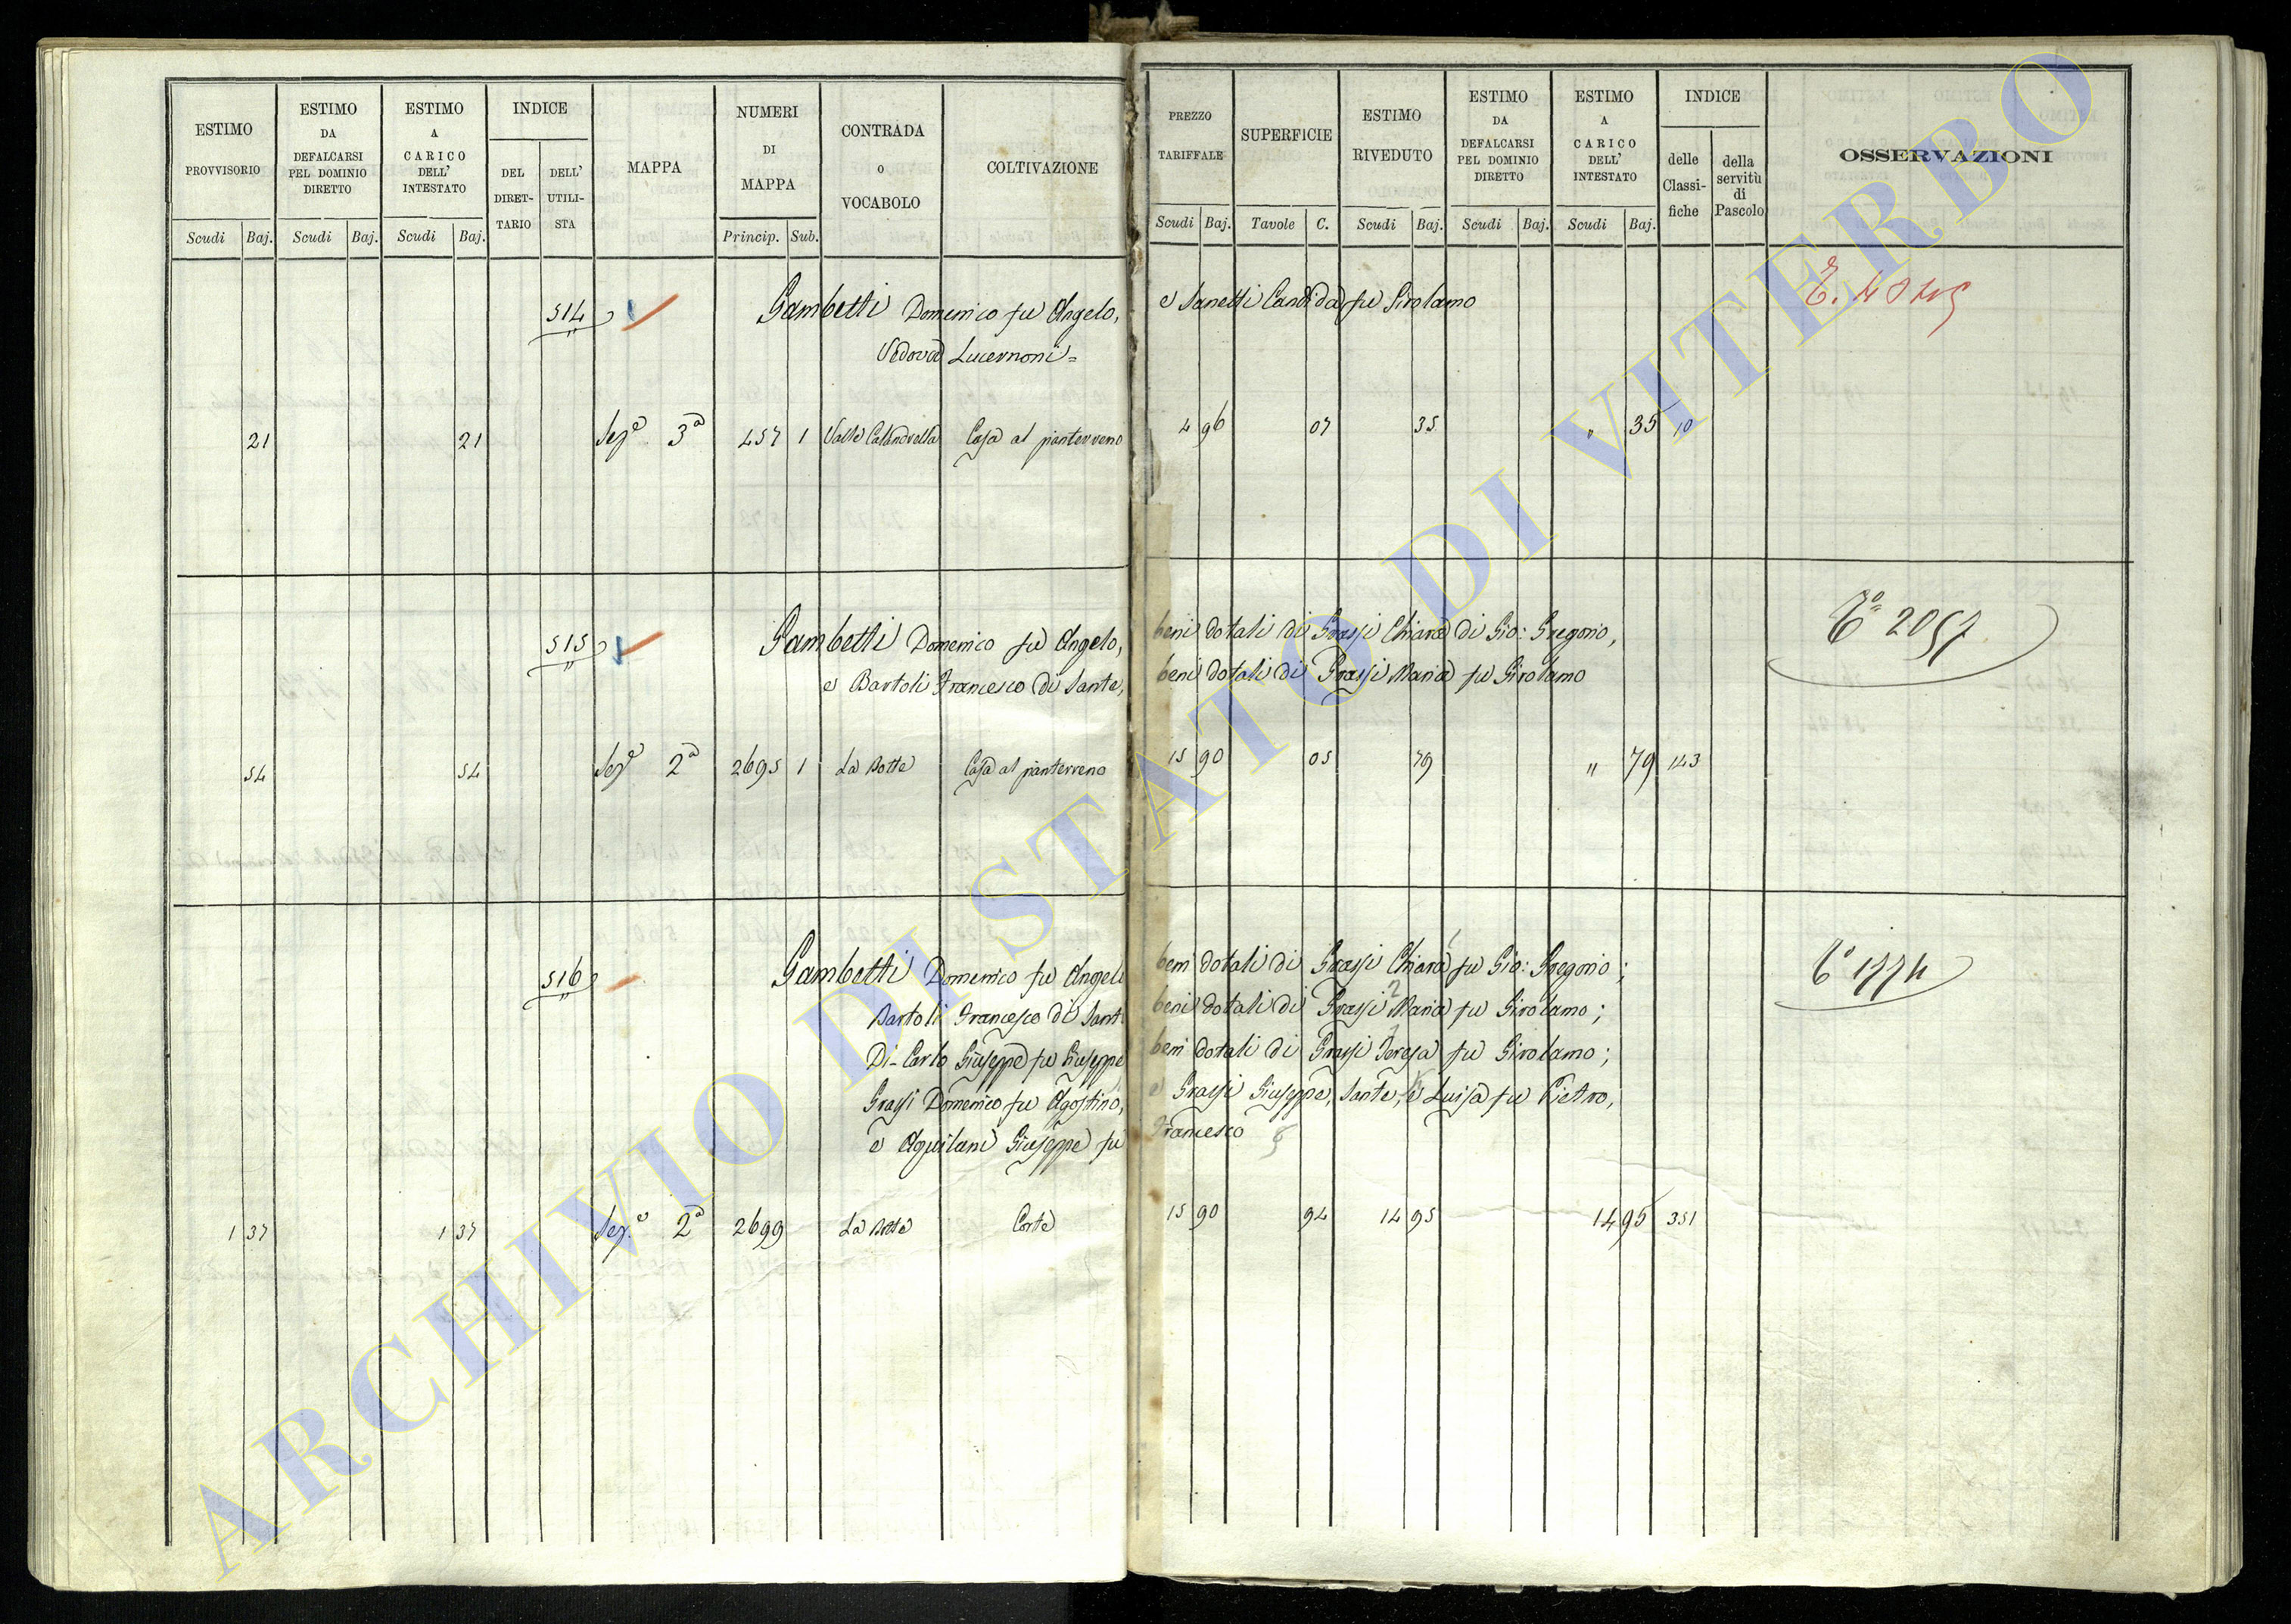 ESTIMO PROVVISORIO
ESTIMO DA DEFALCARSI PEL DOMINIO DIRETTO
ESTIMO A CARICO DELL' INTESTATO
INDICE
DEL DIRET-TARIO
DELL' UTILI-STA
MAPPA
NUMERI DI MAPPA
CONTRADA O VOCABOLO
COLTIVAZIONE
PREZZO TARIFFALE
SUPERFICIE
ESTIMO RIVEDUTO
ESTIMO DA DEFALCARSI PEL DOMINIO DIRETTO
ESTIMO A CARICO DELL' INTESTATO
INDICE
delle Classi-fiche
della servitù di Pascolo
OSSERVAZIONI
Scudi Baj. Scudi Baj. Scudi Baj. Princip. Sub. Scudi Baj. Tavole C. Scudi Baj. Scudi Baj. Scudi Baj.
514 Gambetti Domenico fu Angelo, e Sanetti Candida fu Girolamo
Vedova Lucernoni =
21 21 Sez.e 3a 457 1 Valle Calandrella Casa al pianterreno 4 96 07 35 " 35 10
515 Gambetti Domenico fu Angelo, beni dotali di Grassi Chiara di Gio: Gregorio, To 2057
e Bartoli Francesco di Sante, beni dotali di Grassi Maria fu Girolamo
54 54 Sez.e 2a 2695 1 La Botte Casa al pianterreno 15 90 05 79 " 79 143
516 Gambetti Domenico fu Angelo beni dotali di Grassi Chiara fu Gio: Gregorio; To 1774
Bartoli Francesco di Sante beni dotali di Grassi Maria fu Girolamo;
Di-Carlo Giuseppe fu Giuseppe beni dotali di Grassi Teresa fu Girolamo;
Grassi Domenico fu Agostino, e Grassi Giuseppe, Sante, e Luisa fu Pietro,
e Aquilani Giuseppe fu Francesco
1 37 1 37 Sez.e 2a 2699 La Botte Corte 15 90 94 14 95 14 95 351
ARCHIVIO DI STATO DI VITERBO